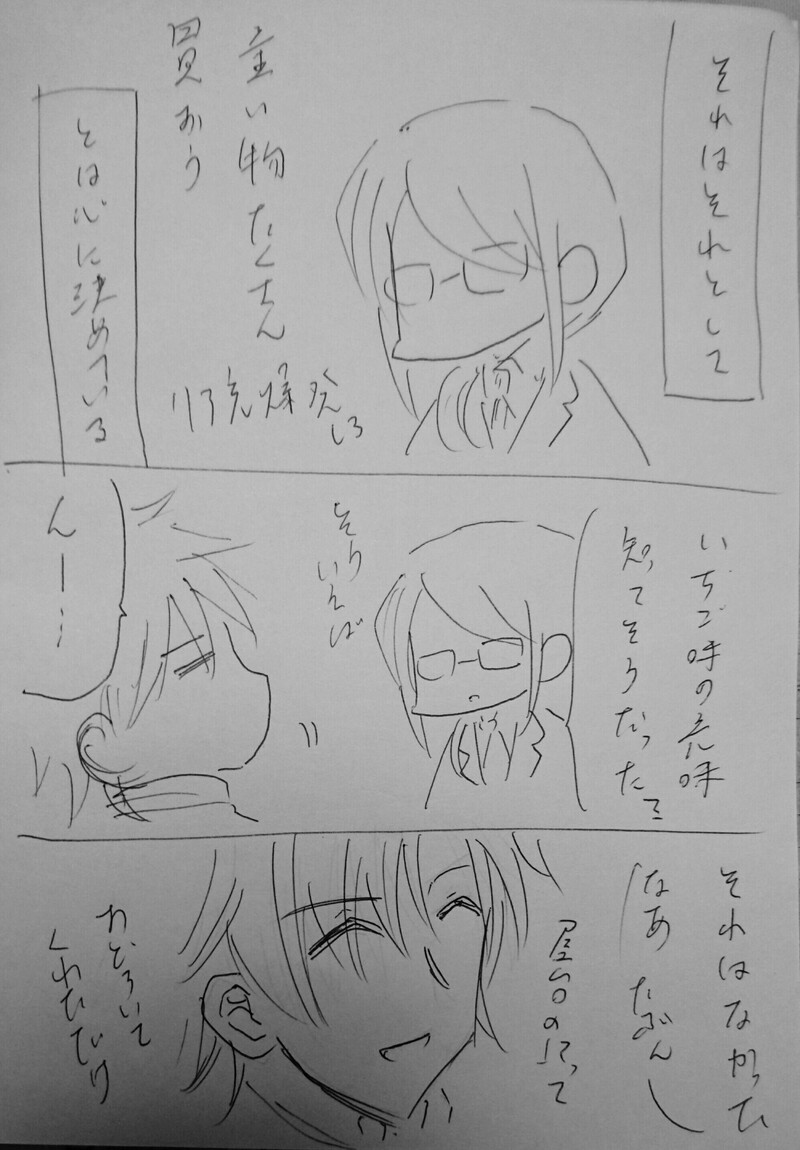 それはそれとして
重い物たくさん
買おう
リア充爆発しろ
とは心に決めている
いちご味の意味
知ってそうだった?
そう
いえば
んー…
それはなかった
なあ たぶん
屋台の灯って
わどろいて
くれただけ